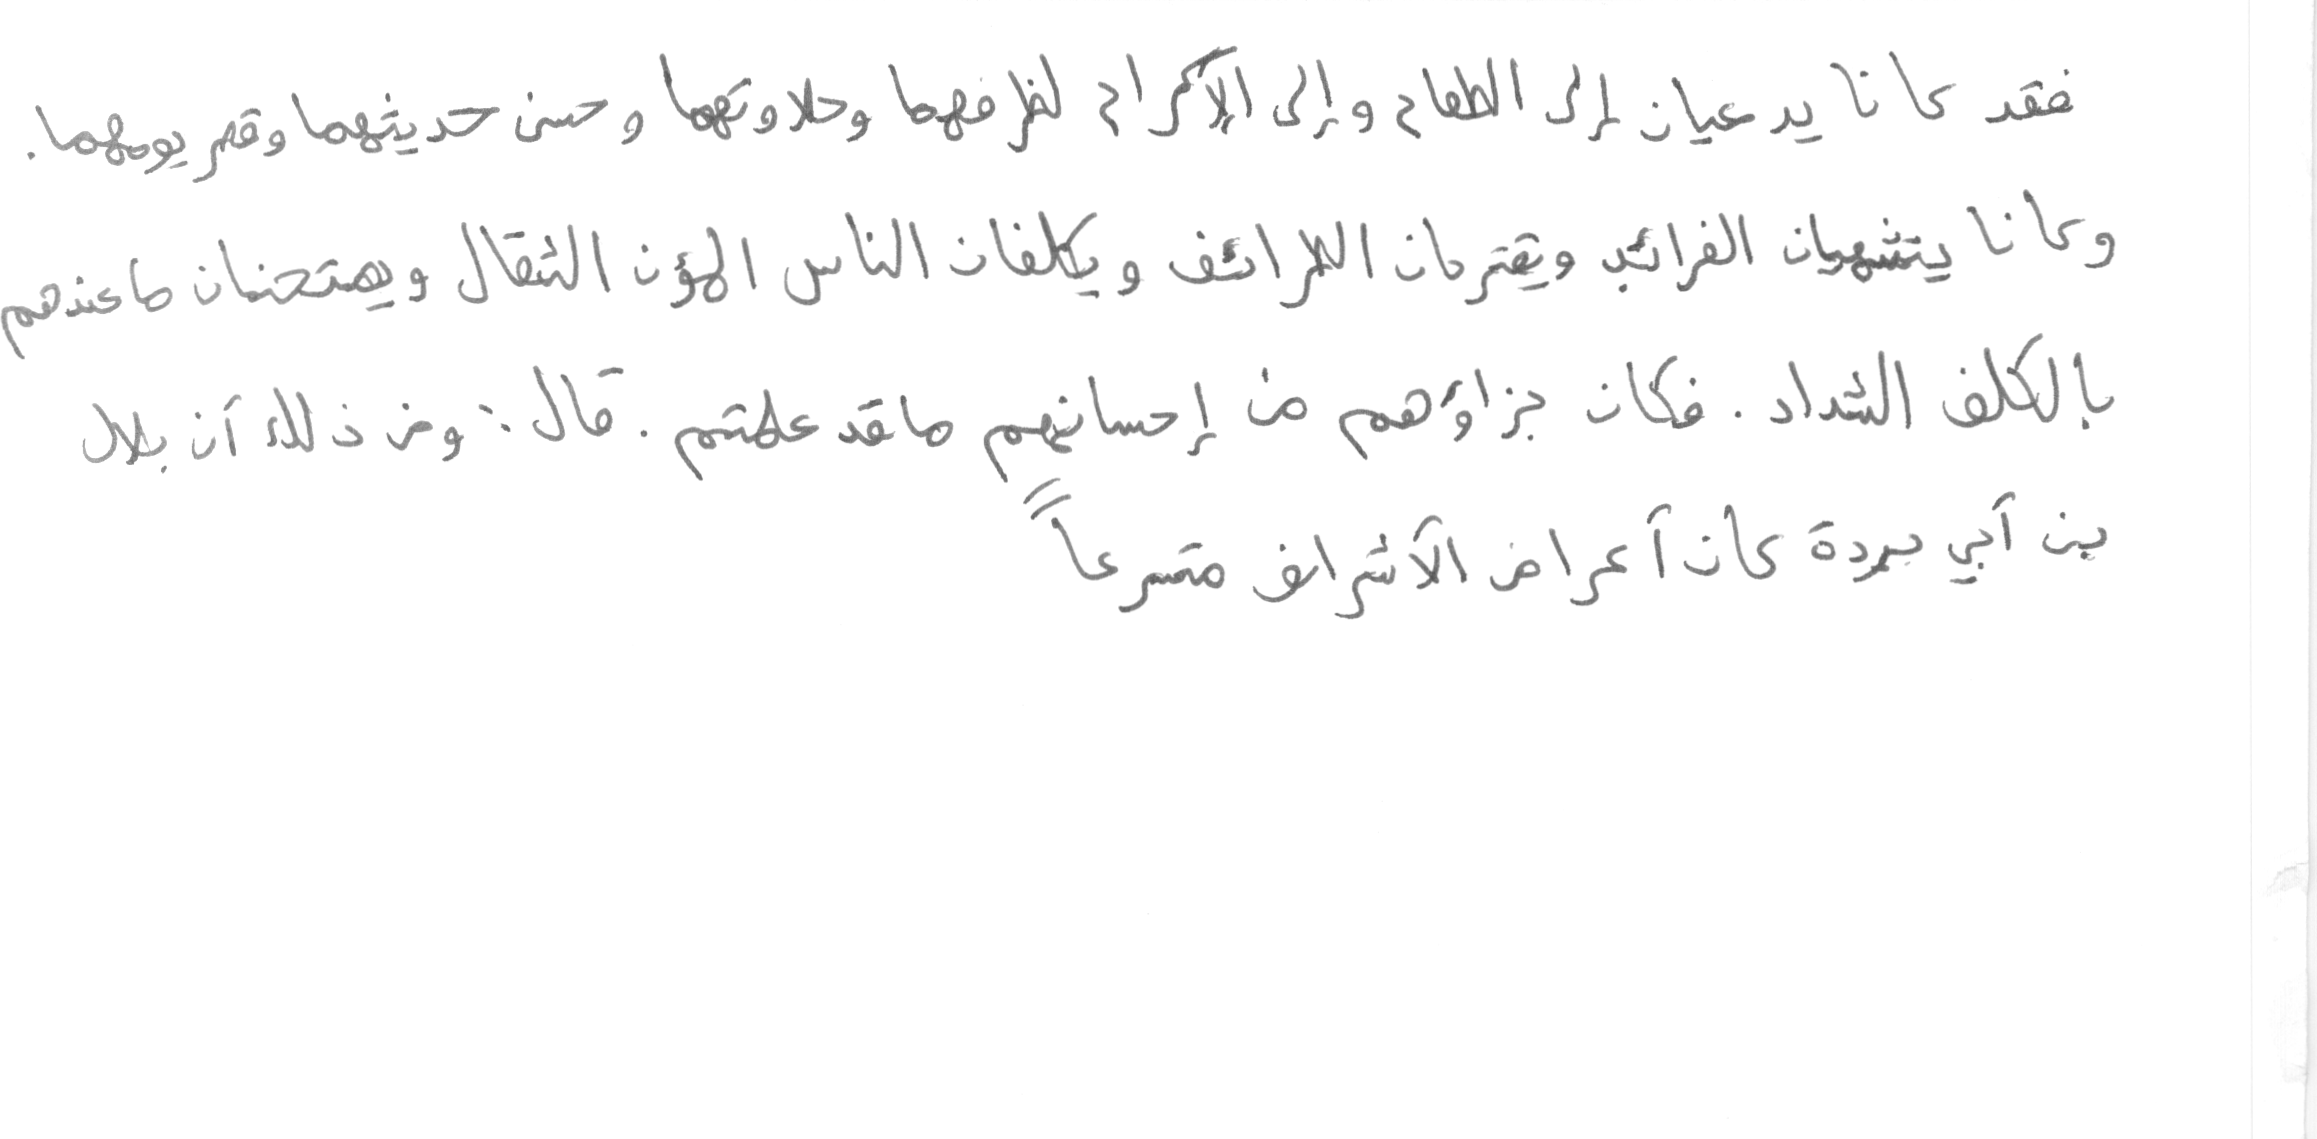 فقد كانا يدعيان إلى الطعام وإلى الإكرام لظرفهما وحلاوتهما وحسن حديثهما وقصر يومهما.
وكانا يتشهيان الغرائب ويقترحان الطرائف ويكلفان الناس المؤن الثقال ويمتحنان ما عندهم
بالكلف الشداد. فكان جزاؤهم من إحسانهم ما قد علمتم. قال: ومن ذلك أن بلال
بن أبي بردة كان أعراض الأشراف متسرعاً